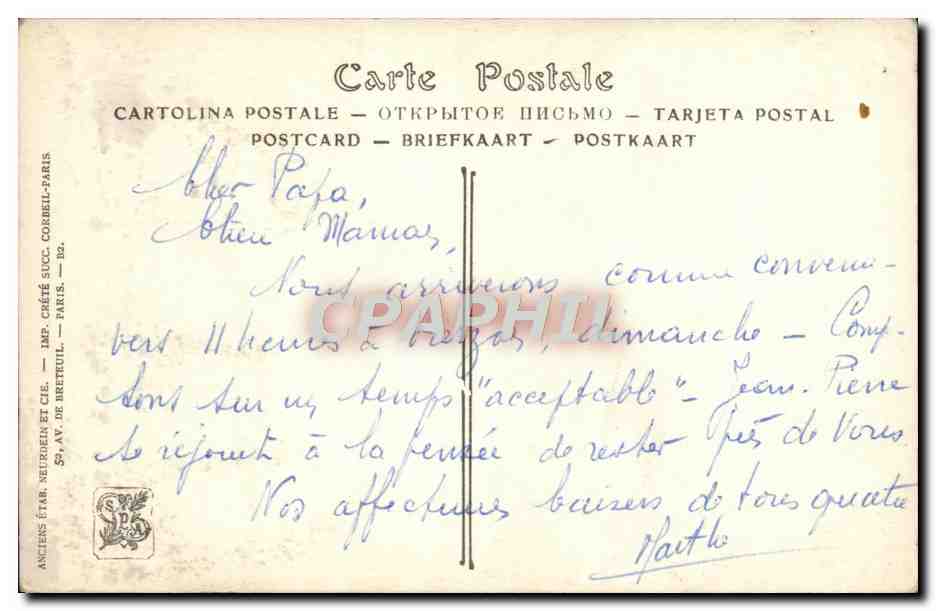 Carte Postale
CARTOLINA POSTALE — ОТКРЫТОЕ ПИСЬМО — TARJETA POSTAL
POSTCARD — BRIEFKAART — POSTKAART
Cher Papa,
Chère Maman,
Nous arriverons comme convenu -
vers 11 heures à dimanche - Comp-
tons sur un temps "acceptable" - Jean-Pierre
se réjouit à la pensée de rester près de Vous
Nos affectueux baisers de tous quatre
Marthe
ANCIENS ÉTAB. NEURDEIN ET CIE. — IMP. CRÉTÉ SUCC. CORBEIL-PARIS
52, AV. DE BRETEUIL. — PARIS. — B2.
CPAPHIL